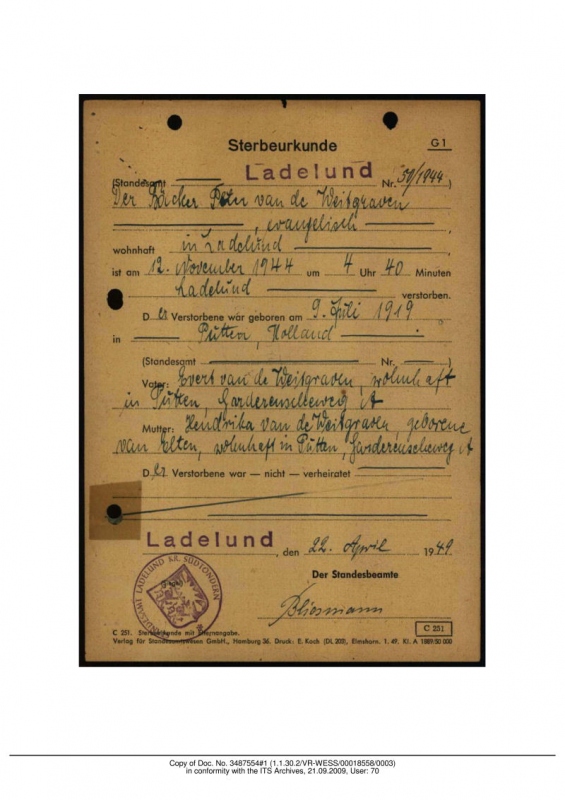 Sterbeurkunde
G 1
(Standesamt Ladelund Nr. 59/1944)
Der Bäcker van de Weitgraven
, evangelisch
wohnhaft in Ladelund
ist am 12. November 1944 um 4 Uhr 40 Minuten
Ladelund verstorben.
Der Verstorbene war geboren am 9. Juli 1919
in Putten, Holland .
(Standesamt Nr. )
Vater: Evert van de Weitgraven, wohnhaft
in Putten, Garderenscheweg
Mutter: Hendrika van de Weitgraven, geborene
van Elten, wohnhaft in Putten, Garderenscheweg
Der Verstorbene war — nicht — verheiratet
Ladelund, den 22. April 1949
Der Standesbeamte
STANDESAMT LADELUND KR. SÜDTONDERN
C 251
C 251. Sterbeurkunde mit Elternangabe.
Verlag für Standesamtswesen GmbH., Hamburg 36. Druck: E. Koch (DL 202), Elmshorn. 1. 49. Kl. A 1889: 50 000
Copy of Doc. No. 3487554#1 (1.1.30.2/VR-WESS/00018558/0003)
in conformity with the ITS Archives, 21.09.2009, User: 70